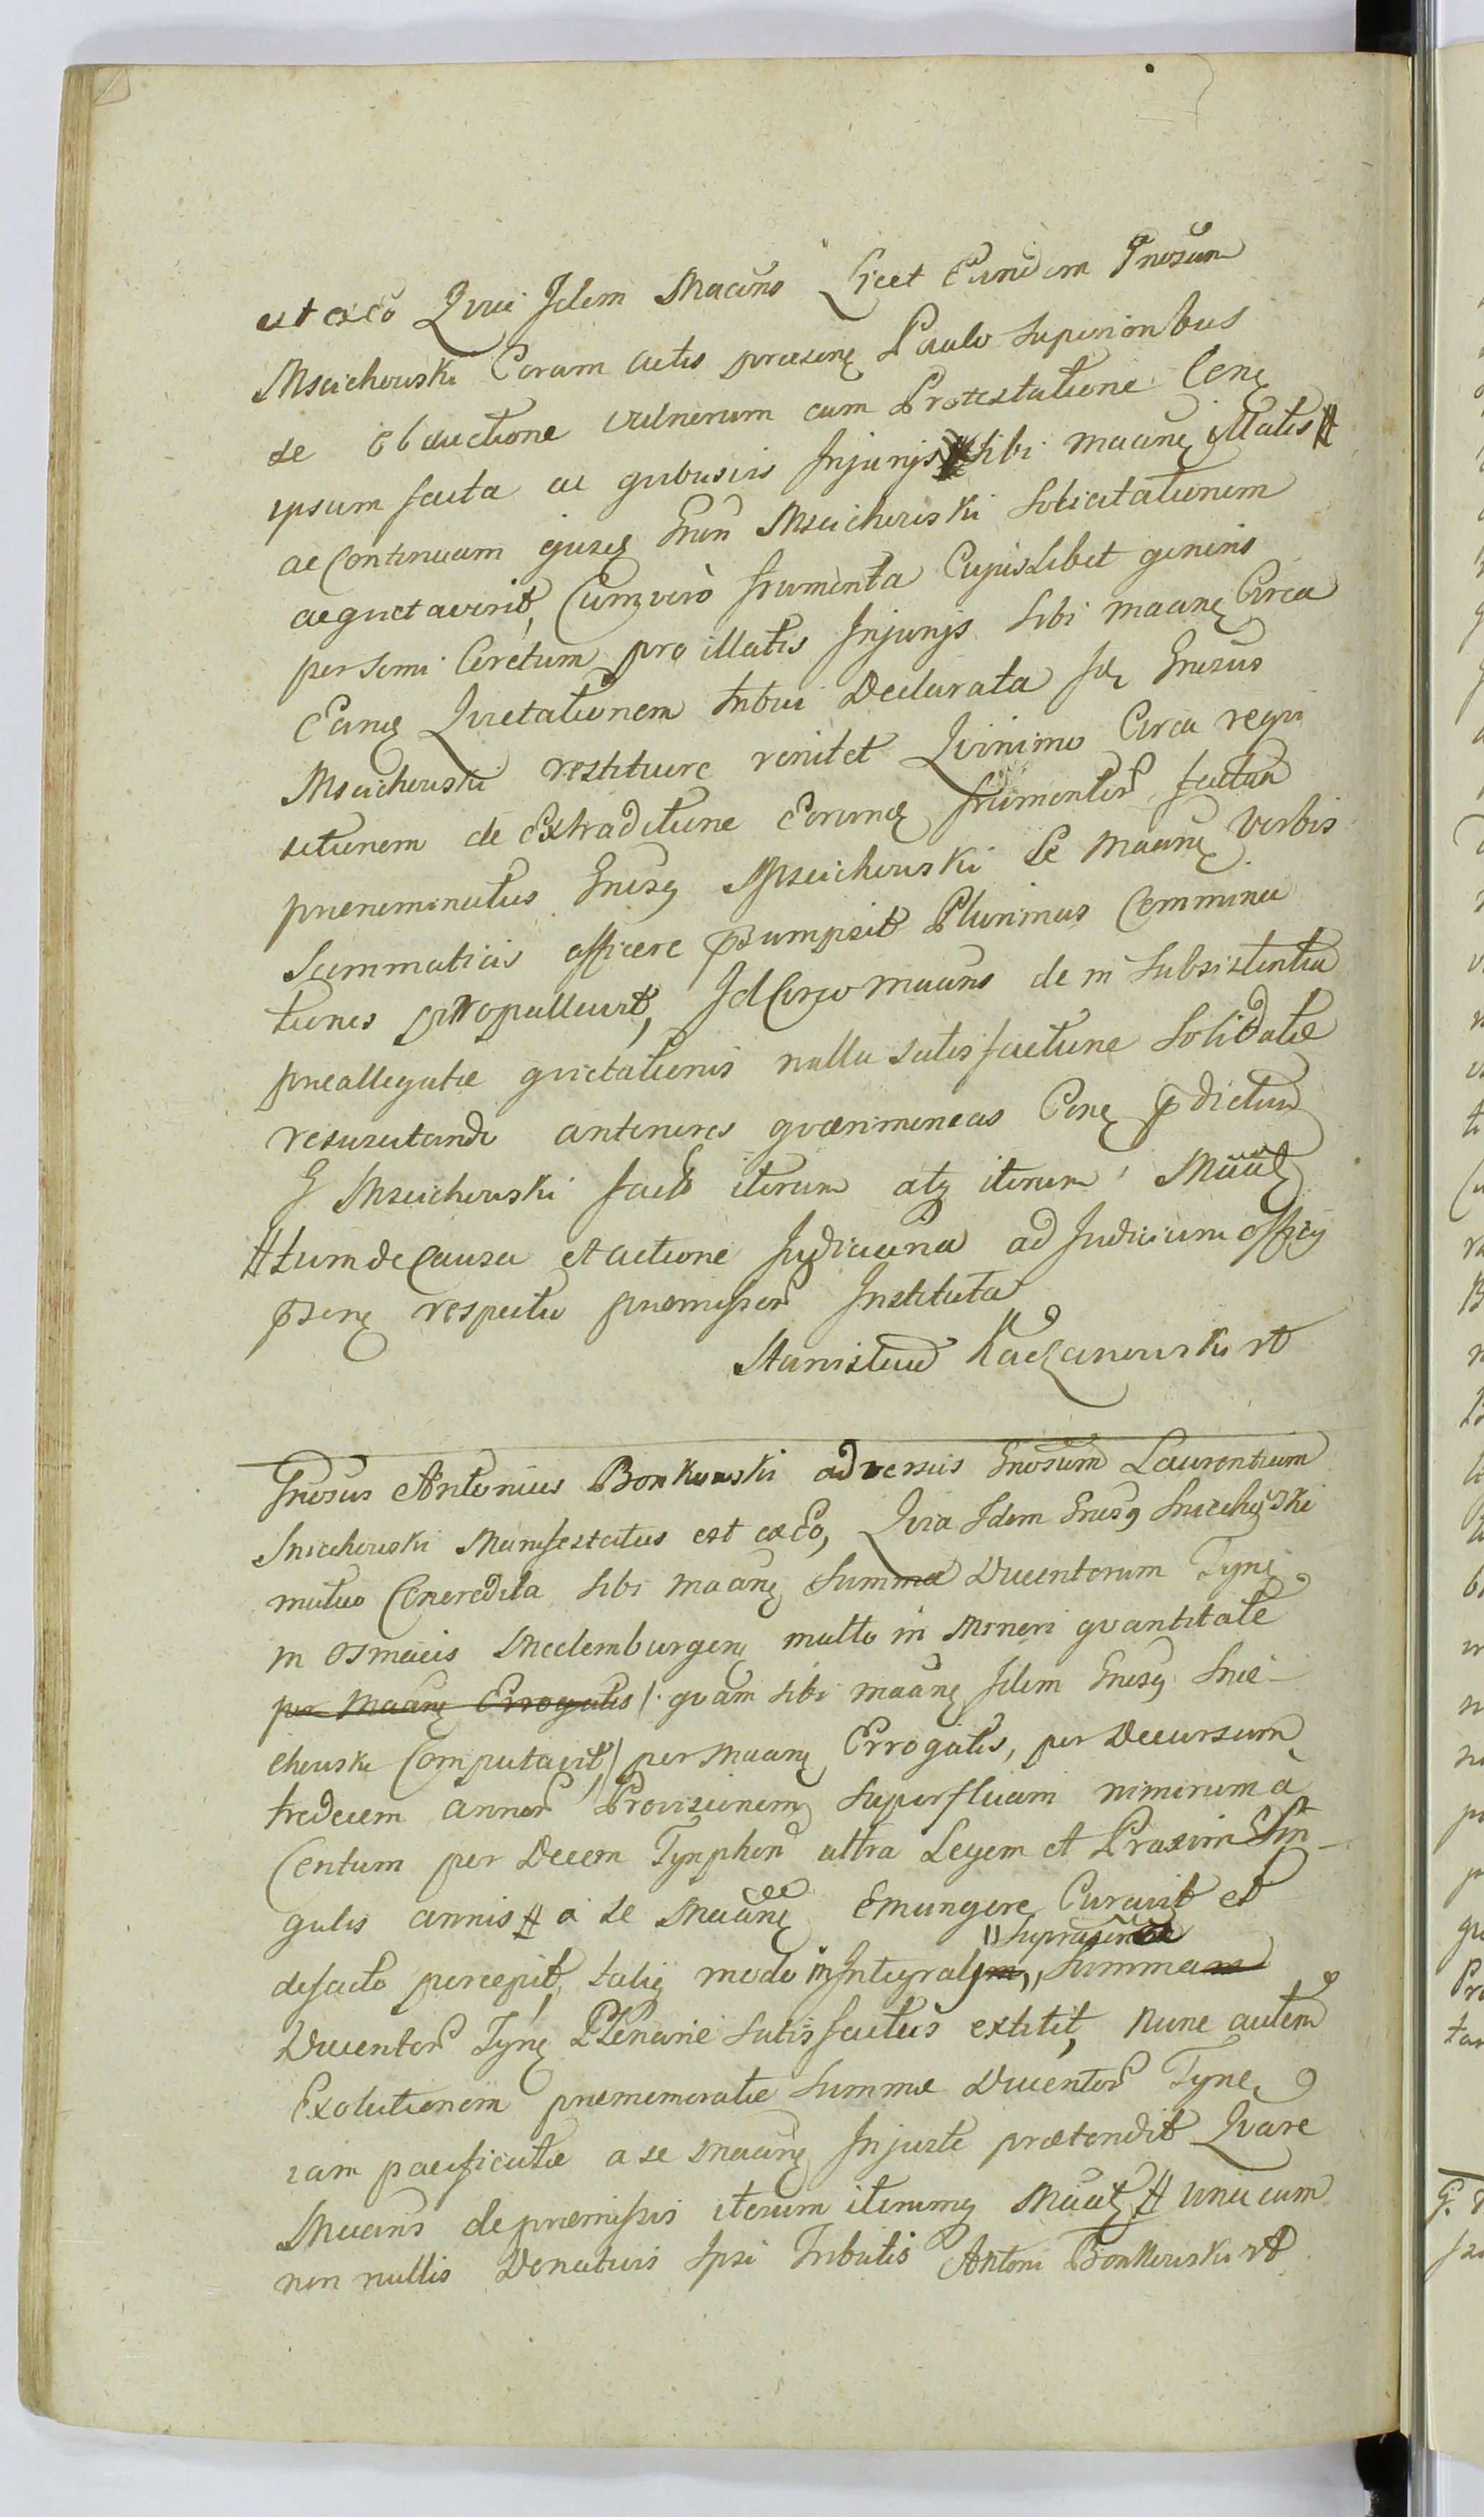 est ex eo Quia Idem Maans Licet Eundem Gnosum
Mscichowski Coram actis praesenę Paulo Superioribus
de obductione vulnerum cum Protestatione Conę
ipsum facta ac quibusvis Injurijs sibi maanę illatis #
ac Continuam ejusę Gnin Mscichowski Solicitationem
aequietaverit, Cum vero frumenta Cujuslibet generis
per semi Coretum pro illatis Injurijs sibi maanę Circa
Eanę Quietationem tribui Declarata Idę Gnosus
Mscichowski restituere renitet Quinimo Circa requi
sitionem de Extraditione Eorumę frumentor factam
praenominatus Gnosę Mscichowski Se Maanę Verbis
Scommaticis afficere psumpsit Plurimas Commina
tiones propallavit, Id Circo maans de in Subsistentia
praeallegatae quietationis nulla satisfactione Solidatae
resuscitando anteriores quaerimonias Conę pdictum
G Mscichowski factas iterum atę iterum Maatę
# tum de Causa et actione Judiciaria ad Judicium officij
psenę respectu praemissor Instituta
Stanisław Kaczanowski rt
Gnosus Antonius Bonkowski adversus Gnosum Laurentium
Sniechowski Manifestatus est ex Eo, Quia Idem Gnosę Sniechowski
mutuo Concredita sibi maanę Summa Ducentorum Tynę
in osmacis Meclemburgenę multo in Minori quantitate
per Maanę Errogatis /. quam sibi maanę Idem Gnosę Snie-
chowski Computavit,/ per Maanę Errogatis, per Decursum
tredecem annor Provisionem superfluam nimirum a
Centum per Decem Tynphon ultra Legem et Praxim Sin-
gulis annis # a se Maanę Emungere Curavit et
" supra
defacto percepit, talię modo in Integralim " Summam
Ducentor Tynę Plenarie satisfactus extitit, nunc autem
Exolutionem praememoratae Summae Ducentor Tynę
iam pacificatae a se Maanę Injuste praetendit Quare
Maans de praemissis iterum iterumę Maatę # una cum
non nullis Donativis Ipsi Tributis Antoni Bonkowski rt